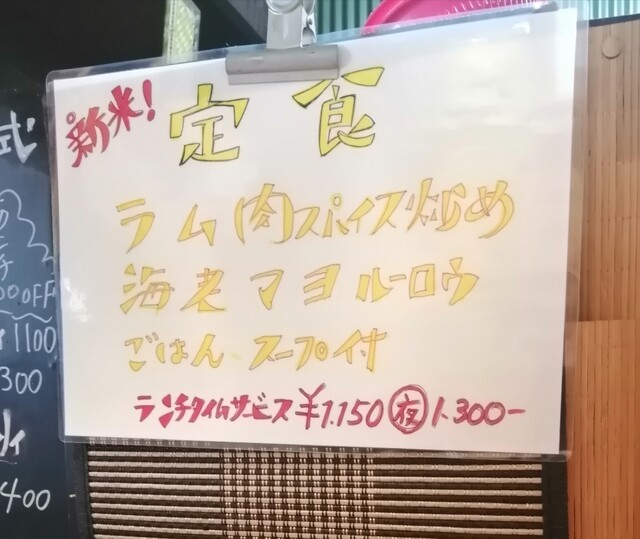 新米!
定食
ラム(肉)スパイス炒め
海老マヨルーロウ
ごはん スープ付
ランチタイムサービス¥1.150 夜 1.300-
OFF
1100
300
400